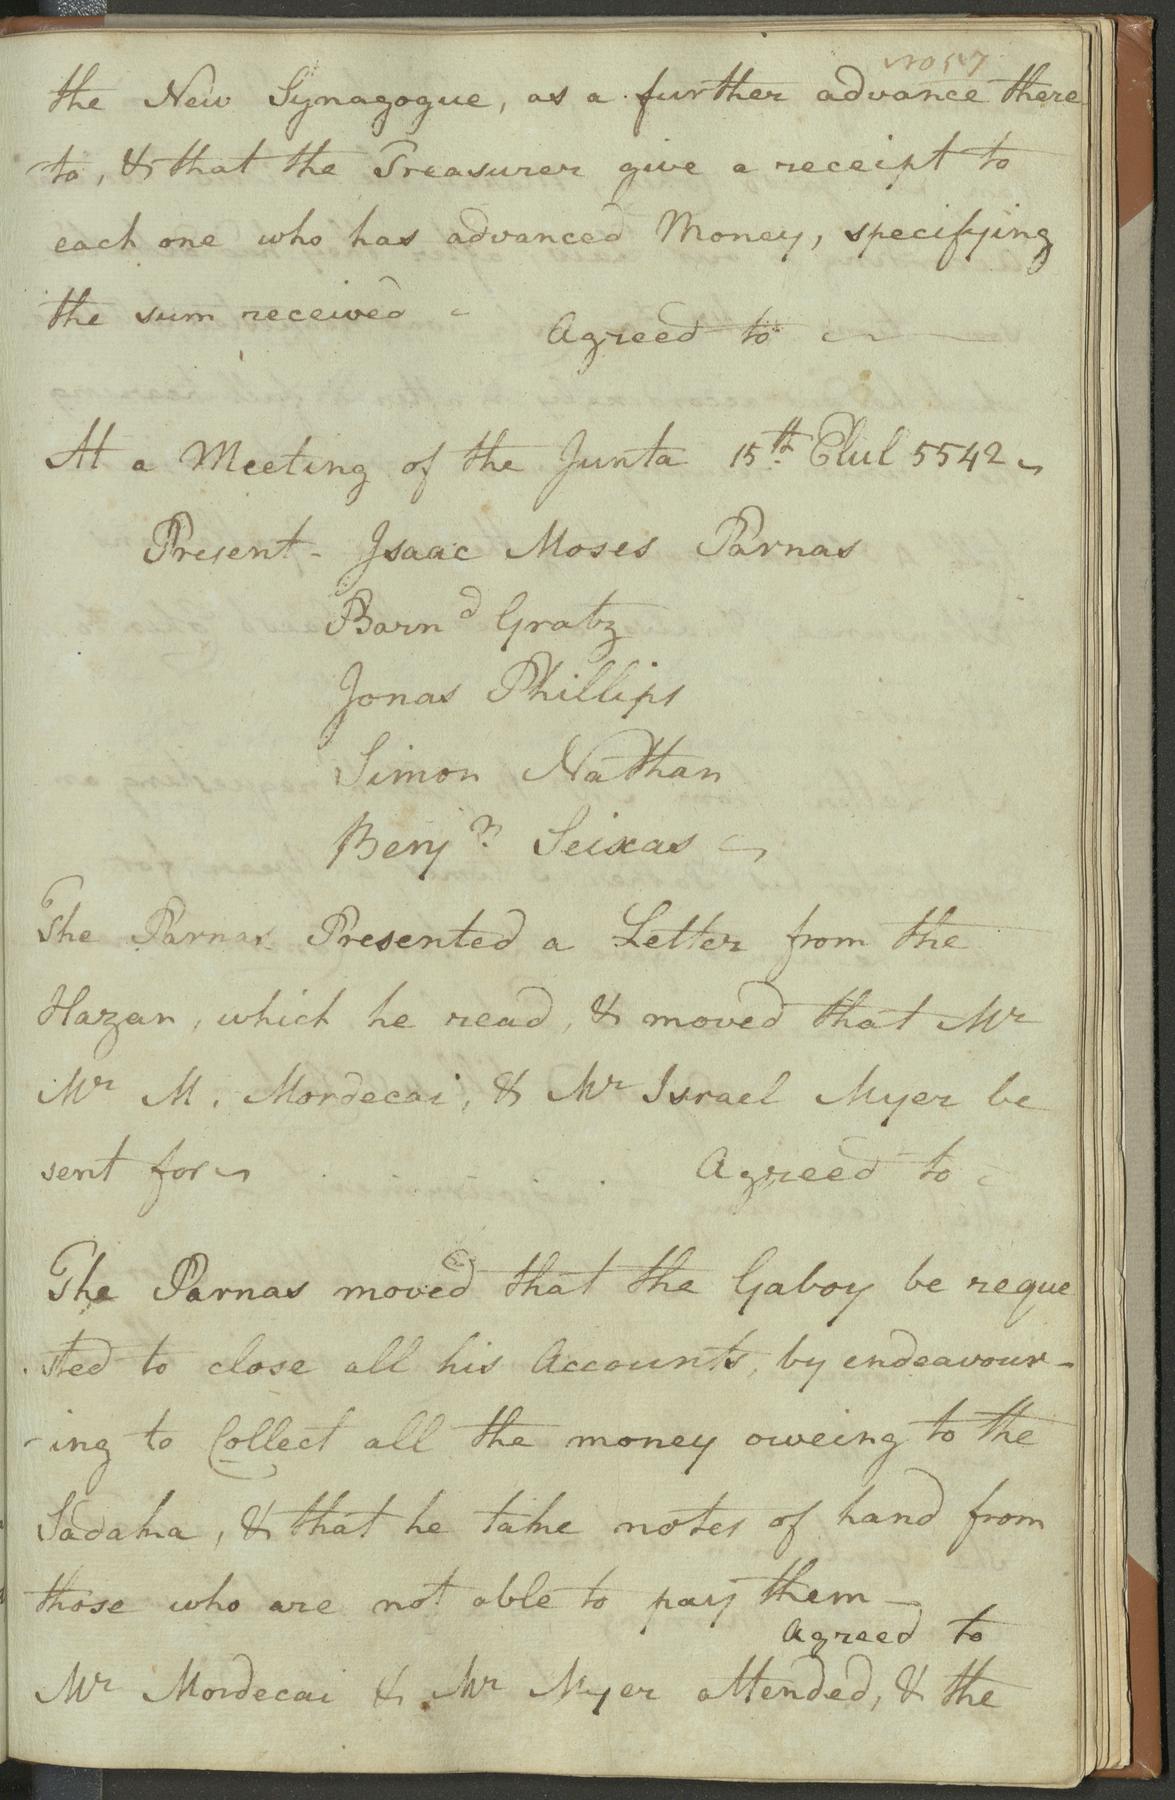 the New Synagogue, as a further advance there
to, & that the Treasurer give a receipt to
each one who has advanced Money, specifying
the sum received
Agreed to
At a Meeting of the Junta 15th Elul 5542
Present - Isaac Moses Parnas
Barnd Gratz
Jonas Phillips
Simon Nathan
Benjn Seixas
The Parnas Presented a Letter from the
Hazan, which he read, & moved that Mr
Mr M. Mordecai, & Mr Israel Myer be
sent for
Agreed to
The Parnas moved that the Gaboy be reque
sted to close all his Accounts, by endeavour-
-ing to Collect all the money oweing to the
Sadaka, & that he take notes of hand from
those who are not able to pay them
Agreed to
Mr Mordecai & Mr Myer attended, & the